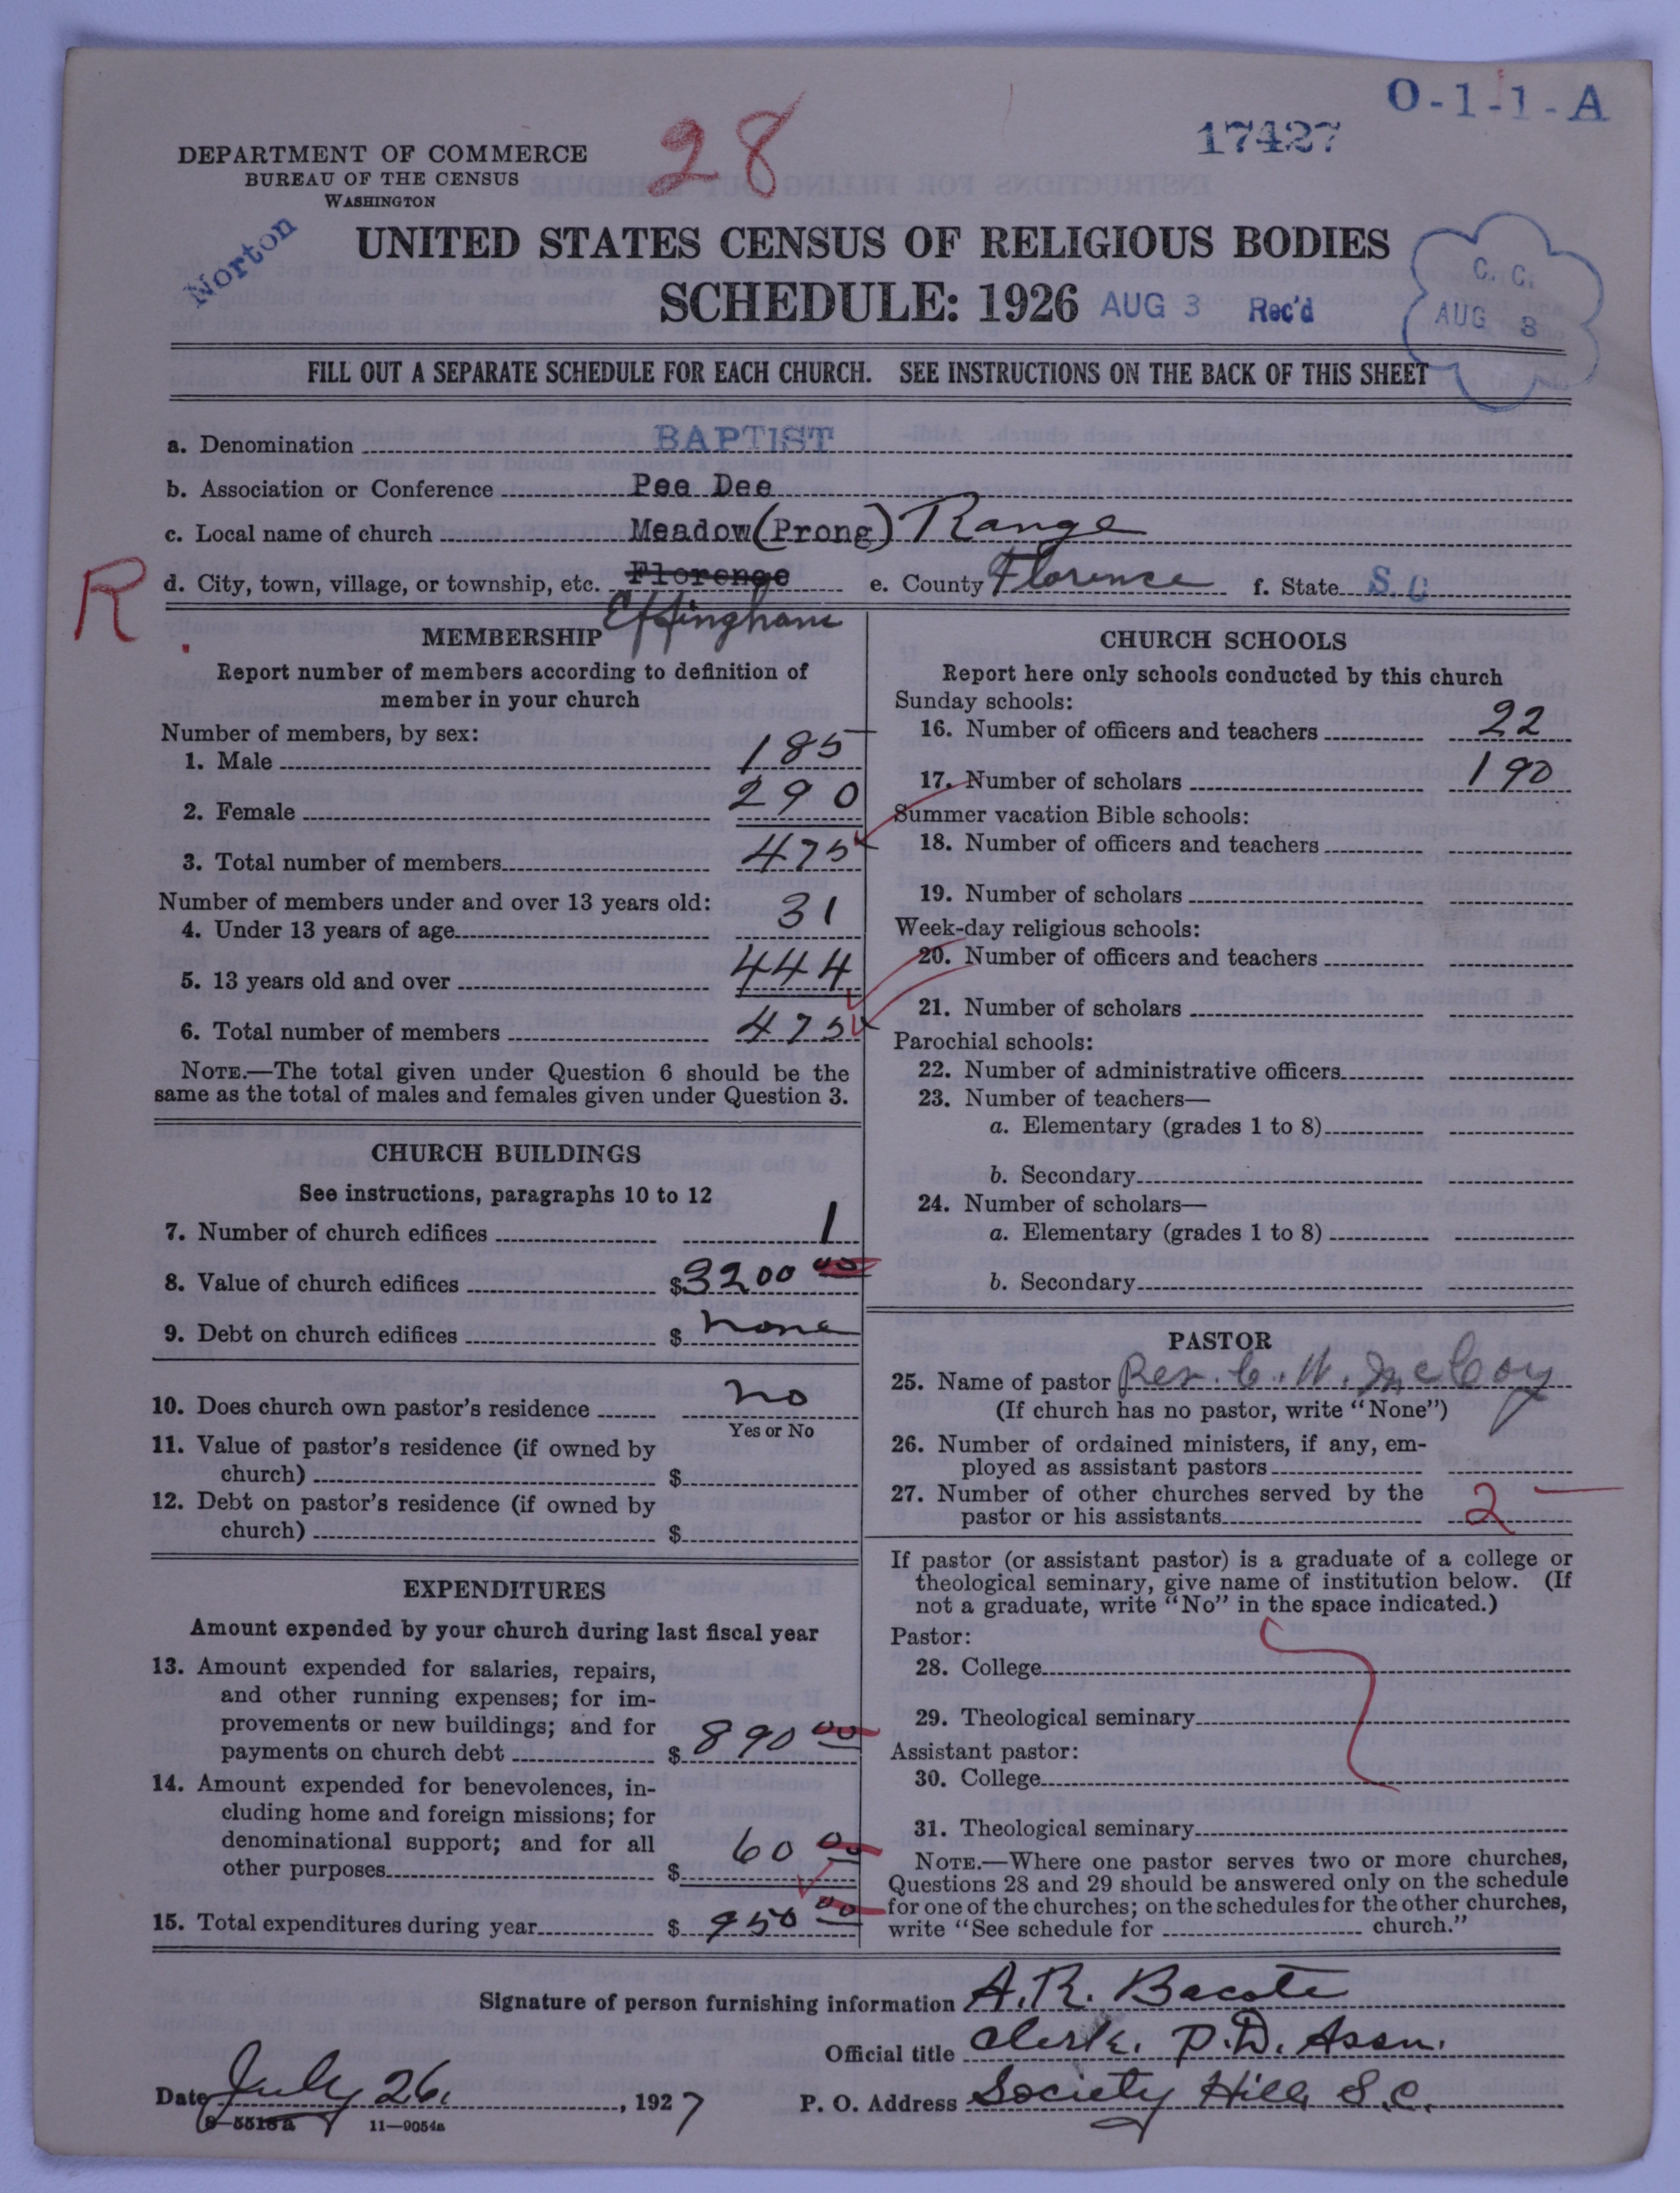 O-1-1-A
17427
28
DEPARTMENT OF COMMERCE
BUREAU OF THE CENSUS
WASHINGTON
Norton
UNITED STATES CENSUS OF RELIGIOUS BODIES
SCHEDULE: 1926 AUG 3 Rec'd
C. C.
AUG 8
FILL OUT A SEPARATE SCHEDULE FOR EACH CHURCH. SEE INSTRUCTIONS ON THE BACK OF THIS SHEET
a. Denomination BAPTIST
b. Association or Conference Pee Dee
c. Local name of church Meadow (Prong) Range
R
d. City, town, village, or township, etc. Florence e. County Florence f. State S. C
Effingham
MEMBERSHIP
Report number of members according to definition of
member in your church
Number of members, by sex:
1. Male 185
2. Female 290
3. Total number of members 475
Number of members under and over 13 years old:
4. Under 13 years of age 31
5. 13 years old and over 444
6. Total number of members 475
NOTE.—The total given under Question 6 should be the
same as the total of males and females given under Question 3.
CHURCH BUILDINGS
See instructions, paragraphs 10 to 12
7. Number of church edifices 1
8. Value of church edifices $3200 00
9. Debt on church edifices $ none
10. Does church own pastor's residence no
Yes or No
11. Value of pastor's residence (if owned by
church) $
12. Debt on pastor's residence (if owned by
church) $
EXPENDITURES
Amount expended by your church during last fiscal year
13. Amount expended for salaries, repairs,
and other running expenses; for im-
provements or new buildings; and for
payments on church debt $ 890 00
14. Amount expended for benevolences, in-
cluding home and foreign missions; for
denominational support; and for all
other purposes $ 60 00
15. Total expenditures during year $ 950 00
CHURCH SCHOOLS
Report here only schools conducted by this church
Sunday schools:
16. Number of officers and teachers 22
17. Number of scholars 190
Summer vacation Bible schools:
18. Number of officers and teachers
19. Number of scholars
Week-day religious schools:
20. Number of officers and teachers
21. Number of scholars
Parochial schools:
22. Number of administrative officers
23. Number of teachers—
a. Elementary (grades 1 to 8)
b. Secondary
24. Number of scholars—
a. Elementary (grades 1 to 8)
b. Secondary
PASTOR
25. Name of pastor Rev. C. W. McCoy
(If church has no pastor, write "None")
26. Number of ordained ministers, if any, em-
ployed as assistant pastors
27. Number of other churches served by the
pastor or his assistants 2
If pastor (or assistant pastor) is a graduate of a college or
theological seminary, give name of institution below. (If
not a graduate, write "No" in the space indicated.)
Pastor:
28. College
29. Theological seminary
Assistant pastor:
30. College
31. Theological seminary
NOTE.—Where one pastor serves two or more churches,
Questions 28 and 29 should be answered only on the schedule
for one of the churches; on the schedules for the other churches,
write "See schedule for church."
Signature of person furnishing information A. R. Bacote
Official title Clerk. P. D. Assn.
Date July 26. , 1927 P. O. Address Society Hill, S. C.
8—5518a 11—9054a